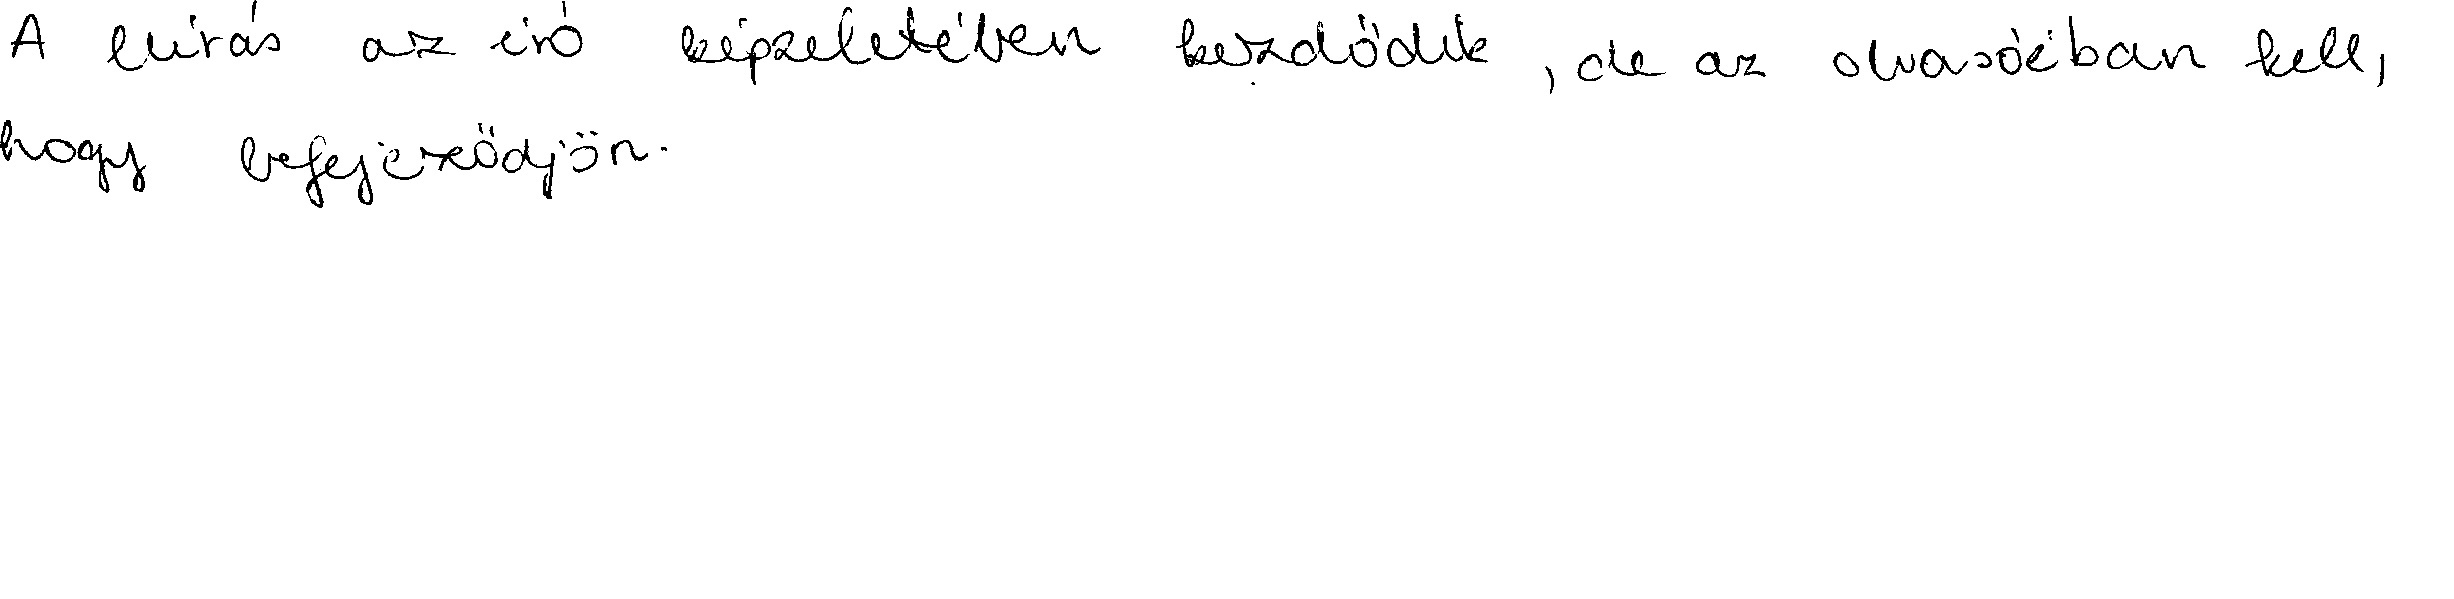 A leírás az író képzeletében kezdődik, de az olvasóéban kell,
hogy befejeződjön.